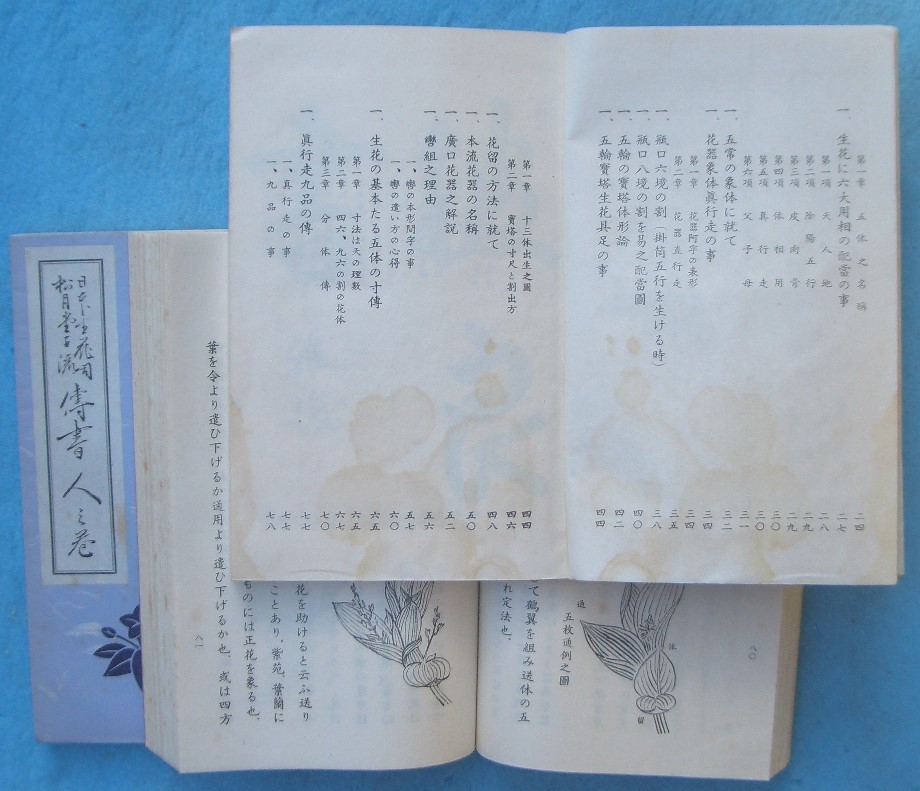 第一章 五体之名稱 二四
一、生花に六大用相の配當の事 二七
第一項 天人地 二八
第二項 陰陽五行 二九
第三項 皮肉骨 二九
第四項 体相用 三〇
第五項 真行走 三〇
第六項 父子母 三一
一、五常の象体に就て 三二
一、花器象体眞行走の事 三四
第一章 花器阿字の表形 三四
第二章 花器真行走 三五
一、瓶口六境の割(掛筒五行を生ける時) 三八
一、瓶口八境の割を易之配當圖 四〇
一、五輪の寶塔体形論 四二
一、五輪寶塔生花具足の事 四四
第一章 十三体出生之圖 四四
第二章 寶塔の寸尺と割出方 四六
一、花留の方法に就て 四八
一、本流花器の名稱 五〇
一、廣口花器之解説 五二
一、轡組之理由 五六
一、轡の本形間字の事 五七
一、轡の遣い方の心得 六〇
一、生花の基本たる五体の寸傳 六五
第一章 寸法は天の理數 六五
第二章 四六、九六の割の花体 六七
第三章 分体傳 七〇
一、眞行走九品の傳 七七
一、真行走の事 七七
一、九品の事 七八
日本生花司
松月堂古流
傳書 人之巻
八〇
体
留
通
五枚通例之圖
て鶴翼を組み送体の五
れ定法也、
花を助けると云ふ送り
ことあり、紫苑、葉蘭に
ものには正花を象る也、
葉を令より遣ひ下げるか通用より遣ひ下げるか也、或は四方
八一